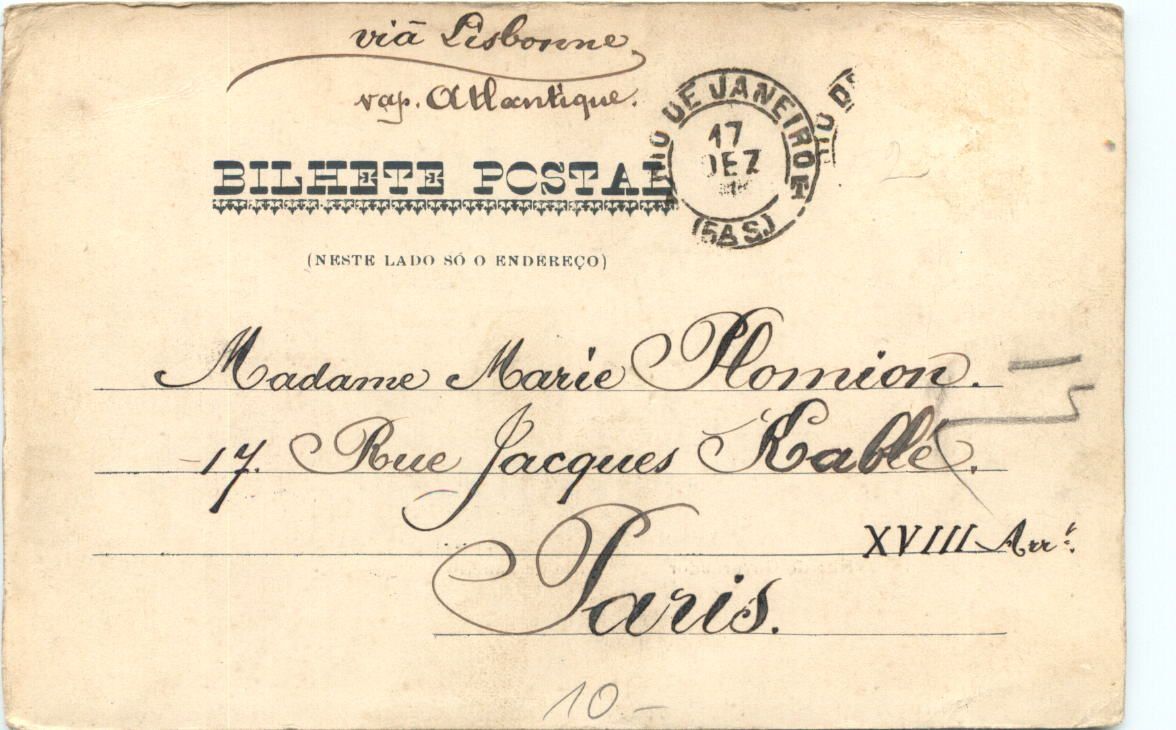 viā Lisbonne
vap. Atlantique.
BILHETE POSTAL
RIO DE JANEIRO
17
DEZ
(5A S)
(NESTE LADO SÓ O ENDEREÇO)
Madame Marie Plomion.
17. Rue Jacques Kablé.
XVIII Arrt.
Paris.
10-